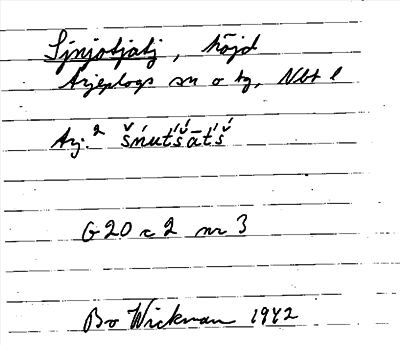 Sjnjotjatj, höjd
Arjeplogs sn o tg, Nbt l
Arj:² šńut́śāt́š́
G 20 c 2 nr 3
Bo Wickman 1942